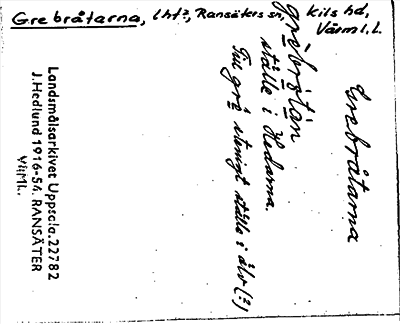 Grebråtarna, lht?, Ransäters sn, Kils hd,
Värml. l.
Grebråtarna
grèbrò̀tàn
ställe i Hedarna.
Till grå stenigt ställe i älv (?)
Landsmålsarkivet Uppsala. 22782
J. Hedlund 1916-54. RANSÄTER
Värml.